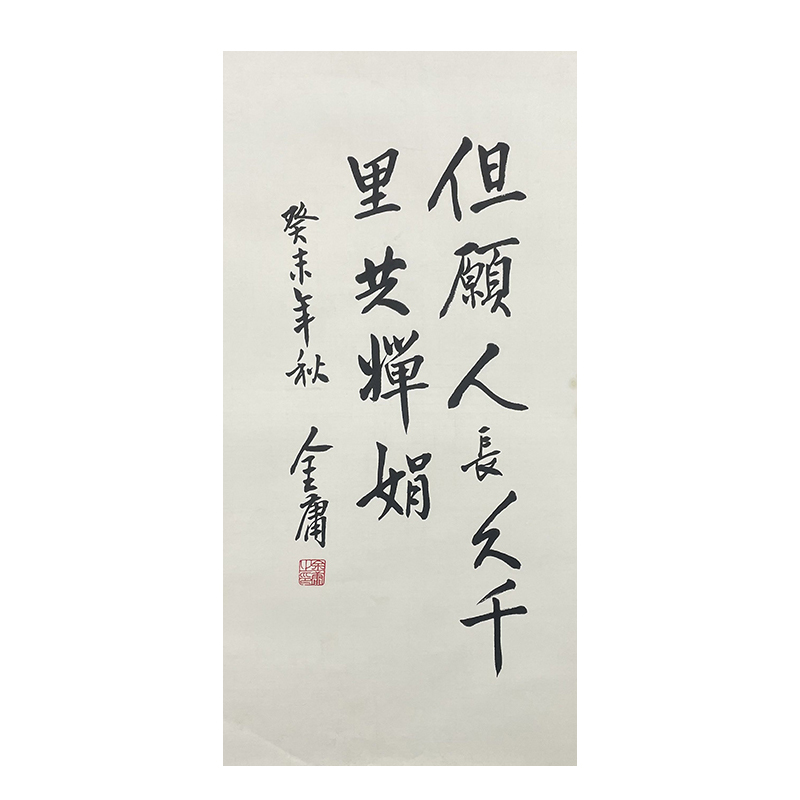 但願人長久千
里共嬋娟
癸未年秋
金庸
金庸之印